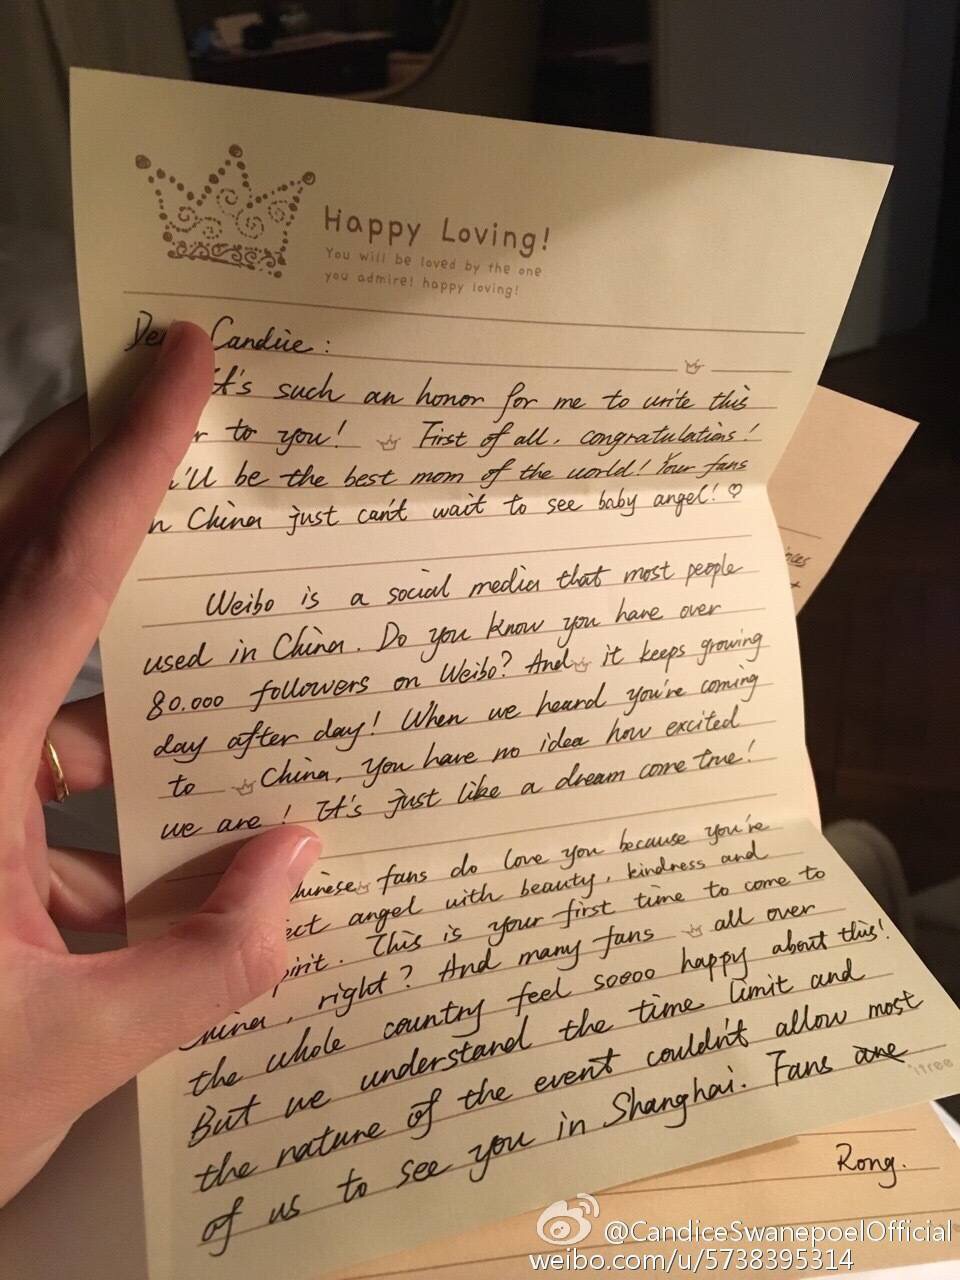 Happy Loving!
You will be loved by the one
you admire! happy loving!
Candice :
It's such an honor for me to write this
to you! First of all, congratulations!
'll be the best mom of the world! Your fans
China just can't wait to see baby angel! ♡
Weibo is a social media that most people
used in China. Do you know you have over
80.000 followers on Weibo? And it keeps growing
day after day! When we heard you're coming
to China, you have no idea how excited
we are! It's just like a dream come true!
fans do love you because you're
angel with beauty, kindness and
This is your first time to come to
, right? And many fans all over
the whole country feel soooo happy about this!
But we understand the time limit and
the nature of the event couldn't allow most
of us to see you in Shanghai. Fans are
itree
Rong.
@CandiceSwanepoelOfficial
weibo.com/u/5738395314